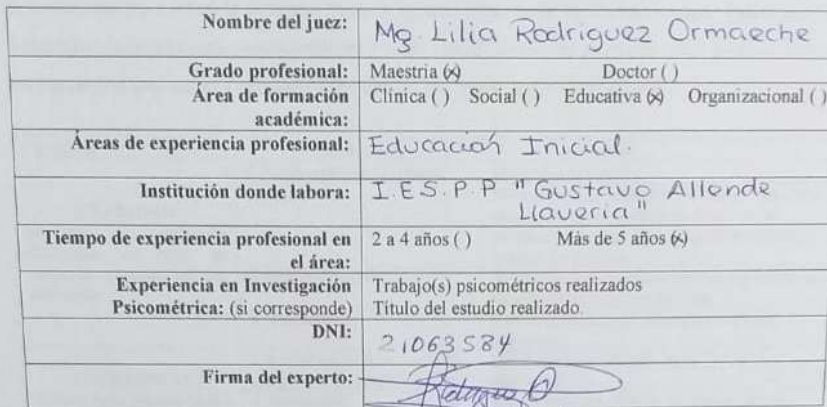 Nombre del juez: Mg. Lilia Rodriguez Ormaeche
Grado profesional: Maestria (x) Doctor ( )
Área de formación Clínica ( ) Social ( ) Educativa (x) Organizacional ( )
académica:
Áreas de experiencia profesional: Educación Inicial.
Institución donde labora: I.E.S.P.P "Gustavo Allende
Llaveria"
Tiempo de experiencia profesional en 2 a 4 años ( ) Más de 5 años (x)
el área:
Experiencia en Investigación Trabajo(s) psicométricos realizados
Psicométrica: (si corresponde) Título del estudio realizado.
DNI: 21063584
Firma del experto: